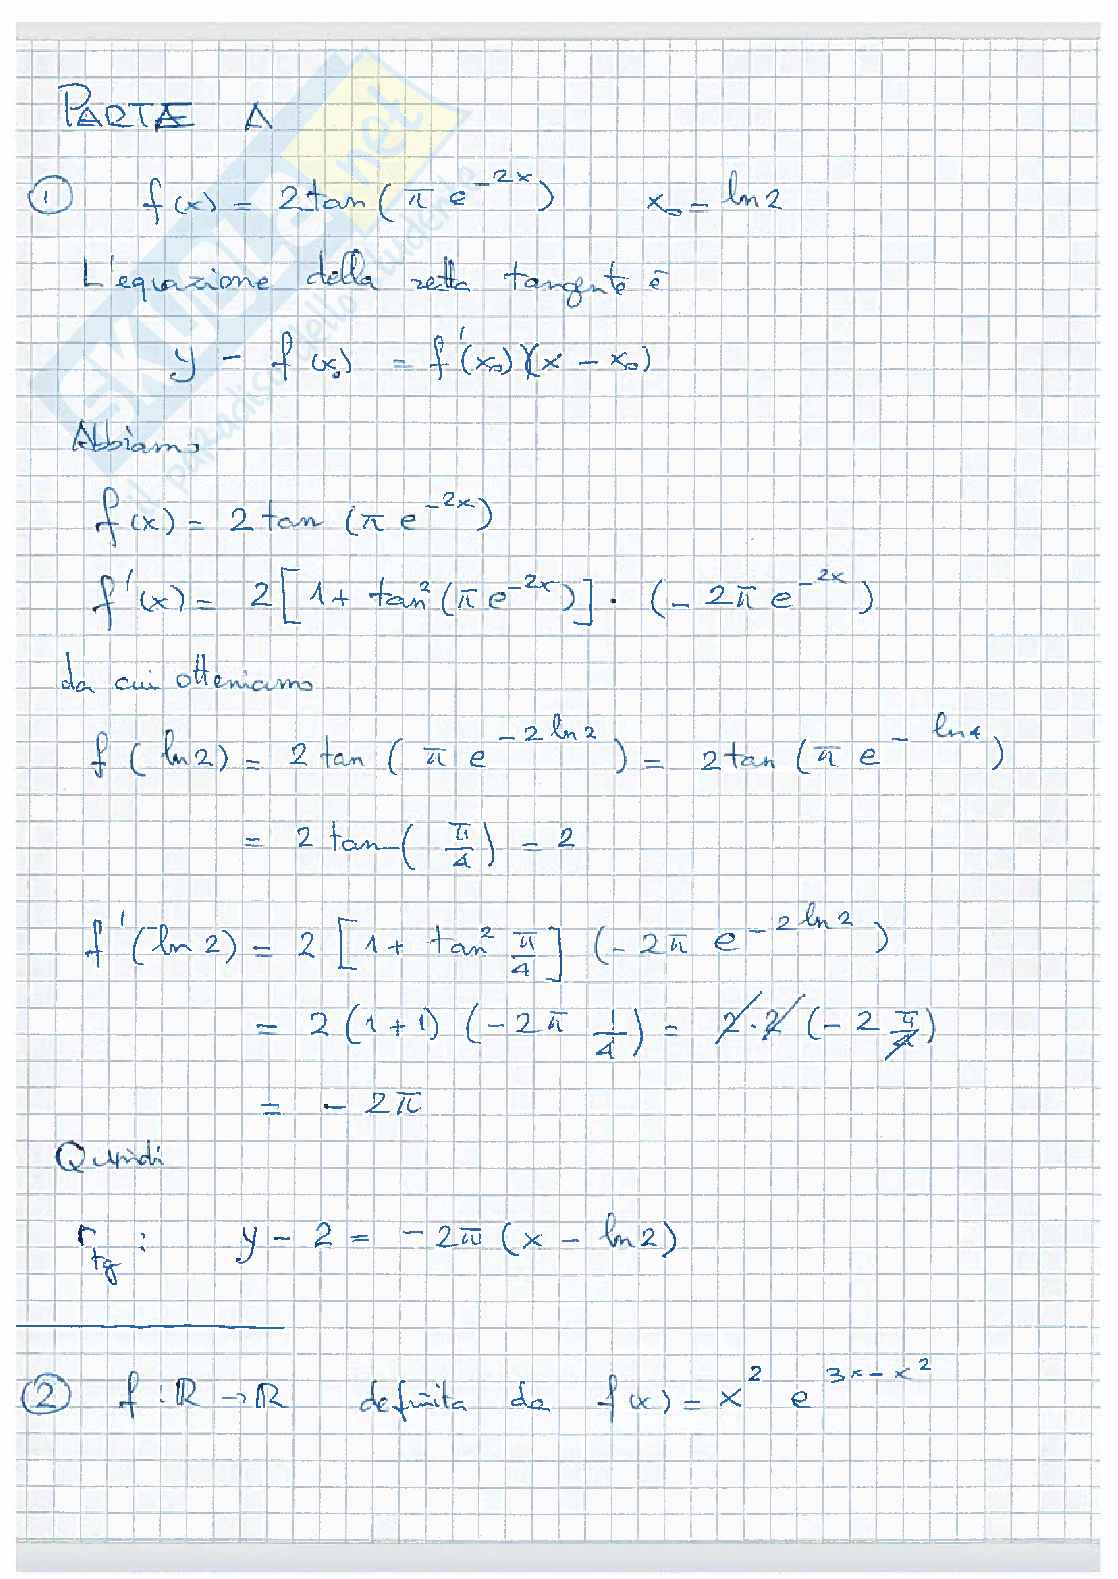 PARTE A
① f(x) = 2 tan(π e^{-2x}) x₀ = ln 2
L'equazione della retta tangente è
y - f(x₀) = f'(x₀)(x - x₀)
Abbiamo
f(x) = 2 tan (π e^{-2x})
f'(x) = 2 [1 + tan²(π e^{-2x})] · (- 2π e^{-2x})
da cui otteniamo
f (ln 2) = 2 tan ( π e^{-2 ln 2} ) = 2 tan (π e^{- ln 4})
= 2 tan ( π/4 ) = 2
f'(ln 2) = 2 [1 + tan² π/4] (- 2π e^{-2 ln 2})
= 2 (1 + 1) (- 2π 1/4) = 2·2 (- 2 π/4)
= - 2π
Quindi
r_tg : y - 2 = - 2π (x - ln 2)
② f : ℝ → ℝ definita da f(x) = x² e^{3x - x²}
SKUOLA.net
il paradiso dello studente